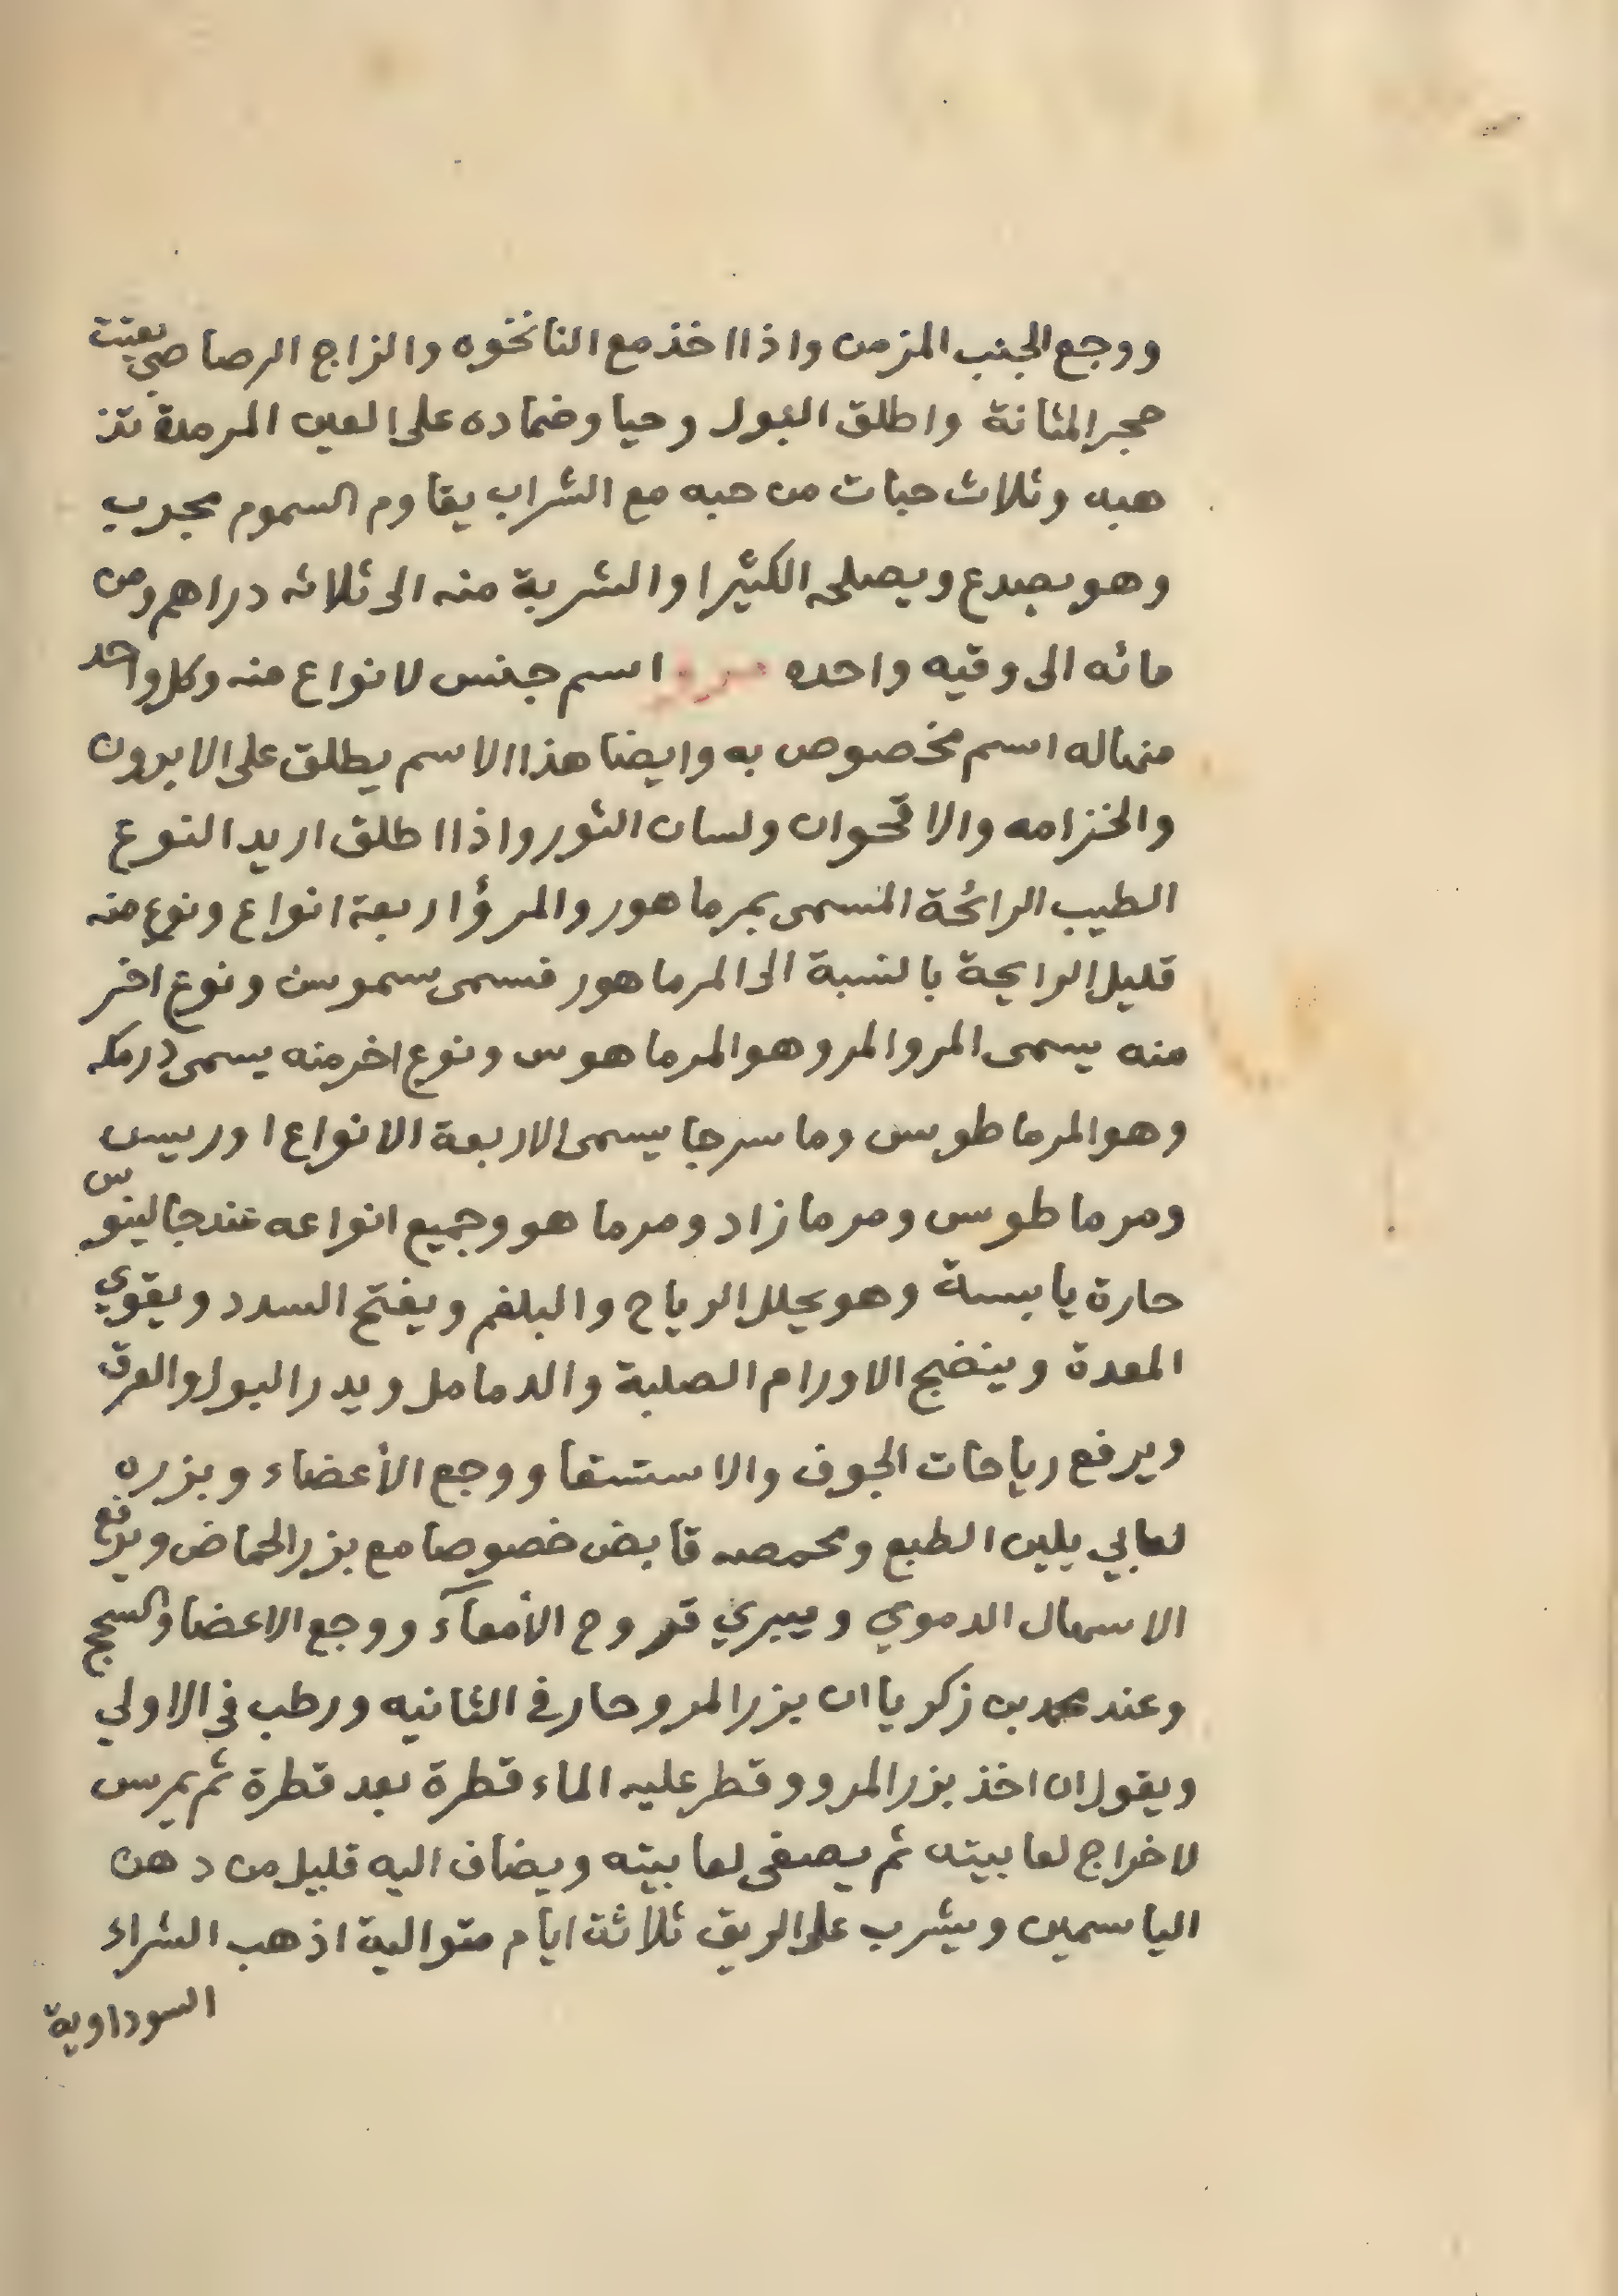 ووجع الجنب المزمن واذا اخذ مع النانخوه والزاج الرصاصي يفتت
حجر المثانة واطلق البول وحيا وضماده على العين المرمدة تذ
هبه وثلاث حبات من حبه مع الشراب يقاوم السموم مجرب
وهو يصدع ويصلحه الكثيرا والشربة منه الى ثلاثه دراهم ومن
مائه الى وقيه واحده مرو اسم جنس لانواع منه وكل واحد
منها له اسم مخصوص به وايضا هذا الاسم يطلق على الابرون
والخزامه والاقحوان ولسان الثور واذا اطلق اريد النوع
الطيب الرائحة المسمى بمرماهور والمرو اربعة انواع ونوع منه
قليل الرايحة بالنسبة الى المرماهور فسمى سموس ونوع اخر
منه يسمى المرو المر وهو المرماهوس ونوع اخر منه يسمى درمكه
وهو المرماطوس وماسرجا يسمى الاربعة الانواع اوريس
ومرماطوس ومرمازاد ومرماهو وجميع انواعه عند جالينوس
حارة يابسة وهو يحلل الرياح والبلغم ويفتح السدد ويقوي
المعدة وينضج الاورام الصلبة والدمامل ويدر البول والعرق
ويرفع رياحات الجوف والاستسقا ووجع الأعضاء وبزره
لعابي يلين الطبع ومحمصه قابض خصوصا مع بزر الحماض ويرفع
الاسهال الدموي ويبري قروح الأمعآء ووجع الاعضا والسحج
وعند محمد بن زكريا ان بزر المرو حار في الثانيه ورطب في الاولي
ويقول ان اخذ بزر المرو وقطر عليه الماء قطرة بعد قطرة ثم يمرس
لاخراج لعابيته ثم يصفى لعابيته ويضاف اليه قليل من دهن
الياسمين ويشرب على الريق ثلاثة ايام متوالية اذهب الشراء
السوداوية